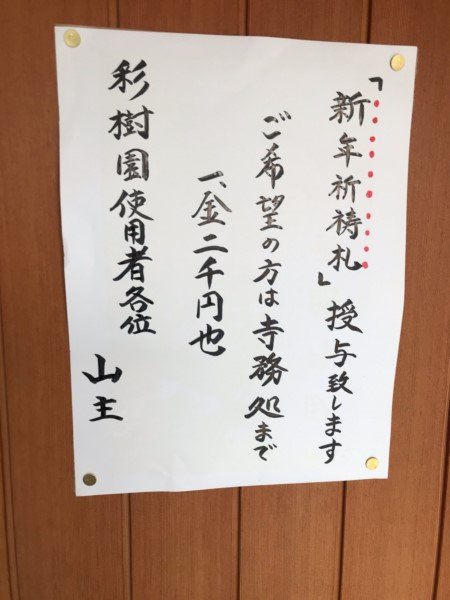 「新年祈祷札」授与致します
ご希望の方は寺務処まで
一、金二千円也
彩樹園使用者各位
山主